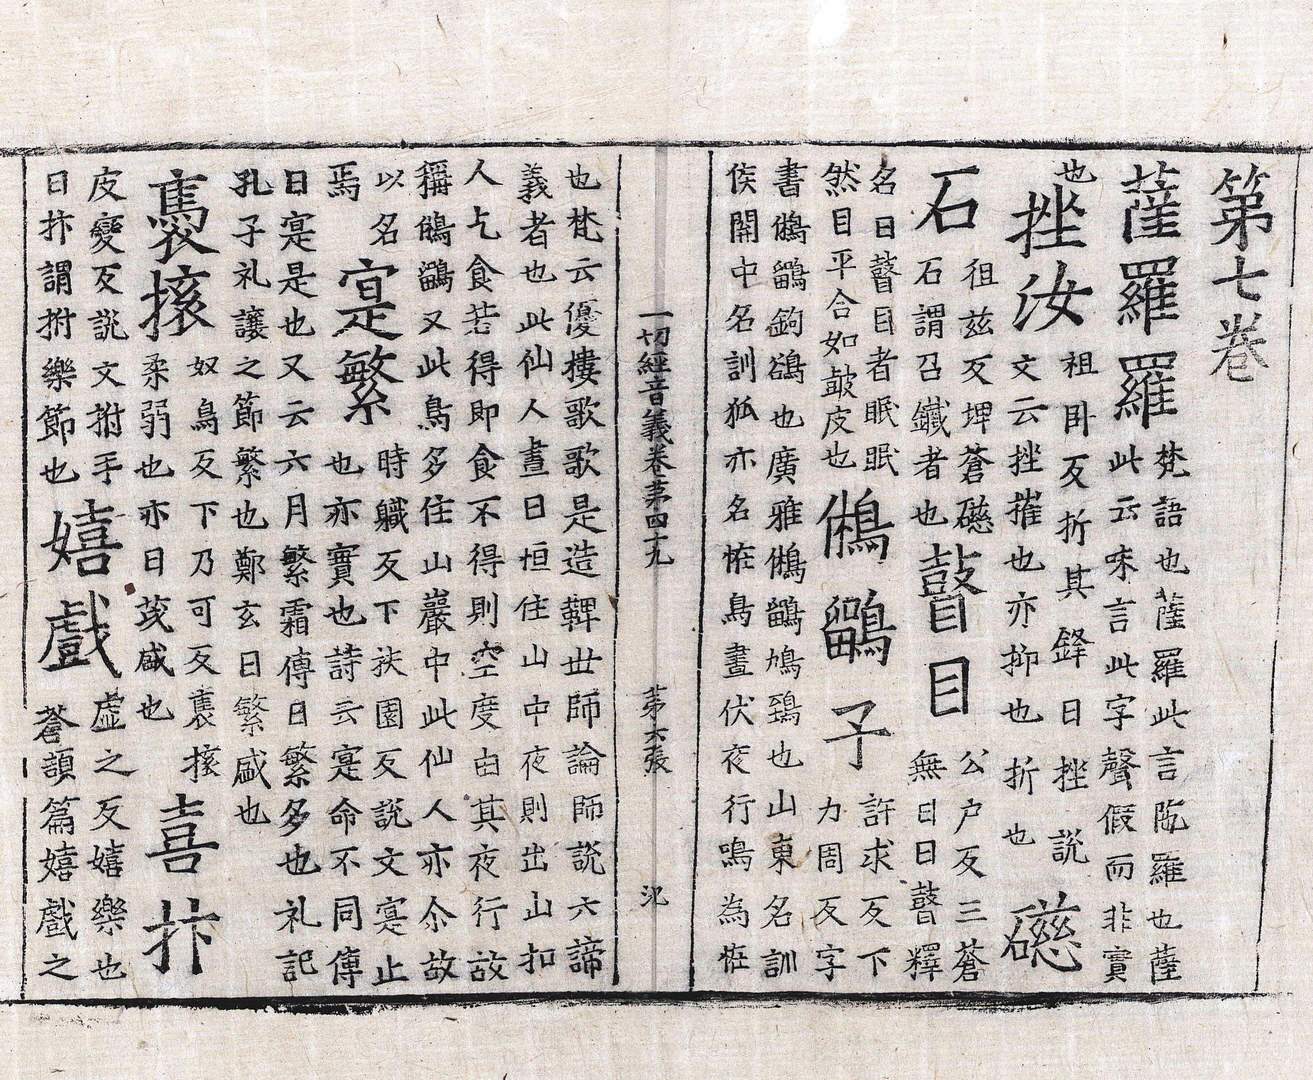 第七卷
薩羅羅
梵語也薩羅此言陁羅也薩
此云味言此字聲假而非實
也
挫汝
祖卧反折其鋒曰挫說
文云挫摧也亦抑也折也
礠石
徂兹反埤蒼礠
石謂召鐵者也
瞽目
公户反三蒼
無目曰瞽釋
名曰瞽目者眠眠
然目平合如皷皮也
鵂鶹子
許求反下
力周反字
書鵂鶹鉤鵅也廣雅鵂鶹鳩鵄也山東名訓
侯關中名訓狐亦名恠鳥晝伏夜行鳴為恠
一切經音義卷第四十九 第六張 氾
也梵云優樓歌歌是造鞞世師論師説六諦
義者也此仙人晝日恒住山中夜則出山扣
人乞食若得即食不得則空度由其夜行故
稱鵂鶹又此鳥多住山巖中此仙人亦尒故
以名
焉
寔繁
時軄反下扶園反説文寔止
也亦實也詩云寔命不同傳
曰寔是也又云六月繁霜傳曰繁多也礼記
孔子礼讓之節繁也鄭玄曰繁盛也
褭㨎
奴鳥反下乃可反褭㨎
柔弱也亦曰茂盛也
喜抃
皮變反説文拊手
曰抃謂拊樂節也
嬉戲
虛之反嬉樂也
蒼頡篇嬉戲之